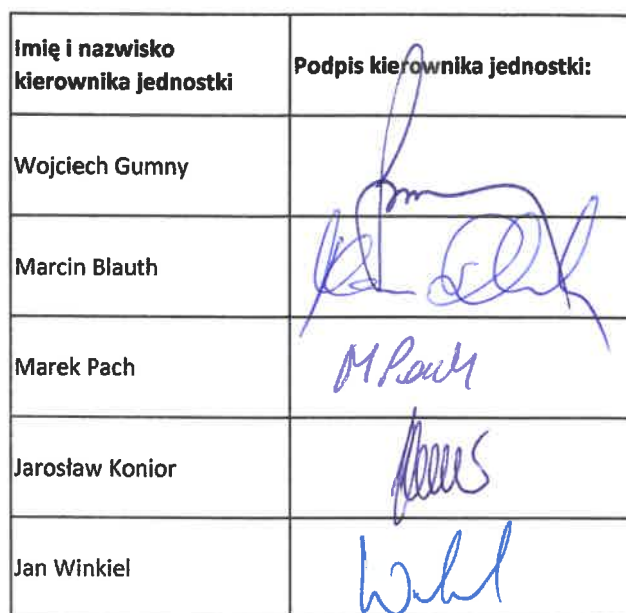 Imię i nazwisko
kierownika jednostki
Podpis kierownika jednostki:
Wojciech Gumny
Marcin Blauth
Marek Pach
M Pach
Jarosław Konior
Jan Winkiel